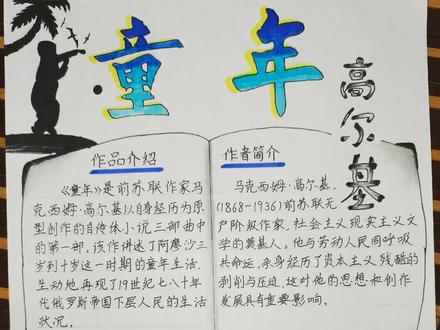 童年
高尔基
作品介绍
《童年》是前苏联作家马
克西姆·高尔基以自身经历为原
型创作的自传体小说三部曲中
的第一部。该作讲述了阿廖沙三
岁到十岁这一时期的童年生活,
生动地再现了19世纪七八十年
代俄罗斯帝国下层人民的生活
状况。
作者简介
马克西姆·高尔基,
(1868-1936)前苏联无
产阶级作家,社会主义现实主义文
学的奠基人。他与劳动人民同呼吸
共命运,亲身经历了资本主义残酷的
剥削与压迫,这对他的思想和创作
发展具有重要影响。